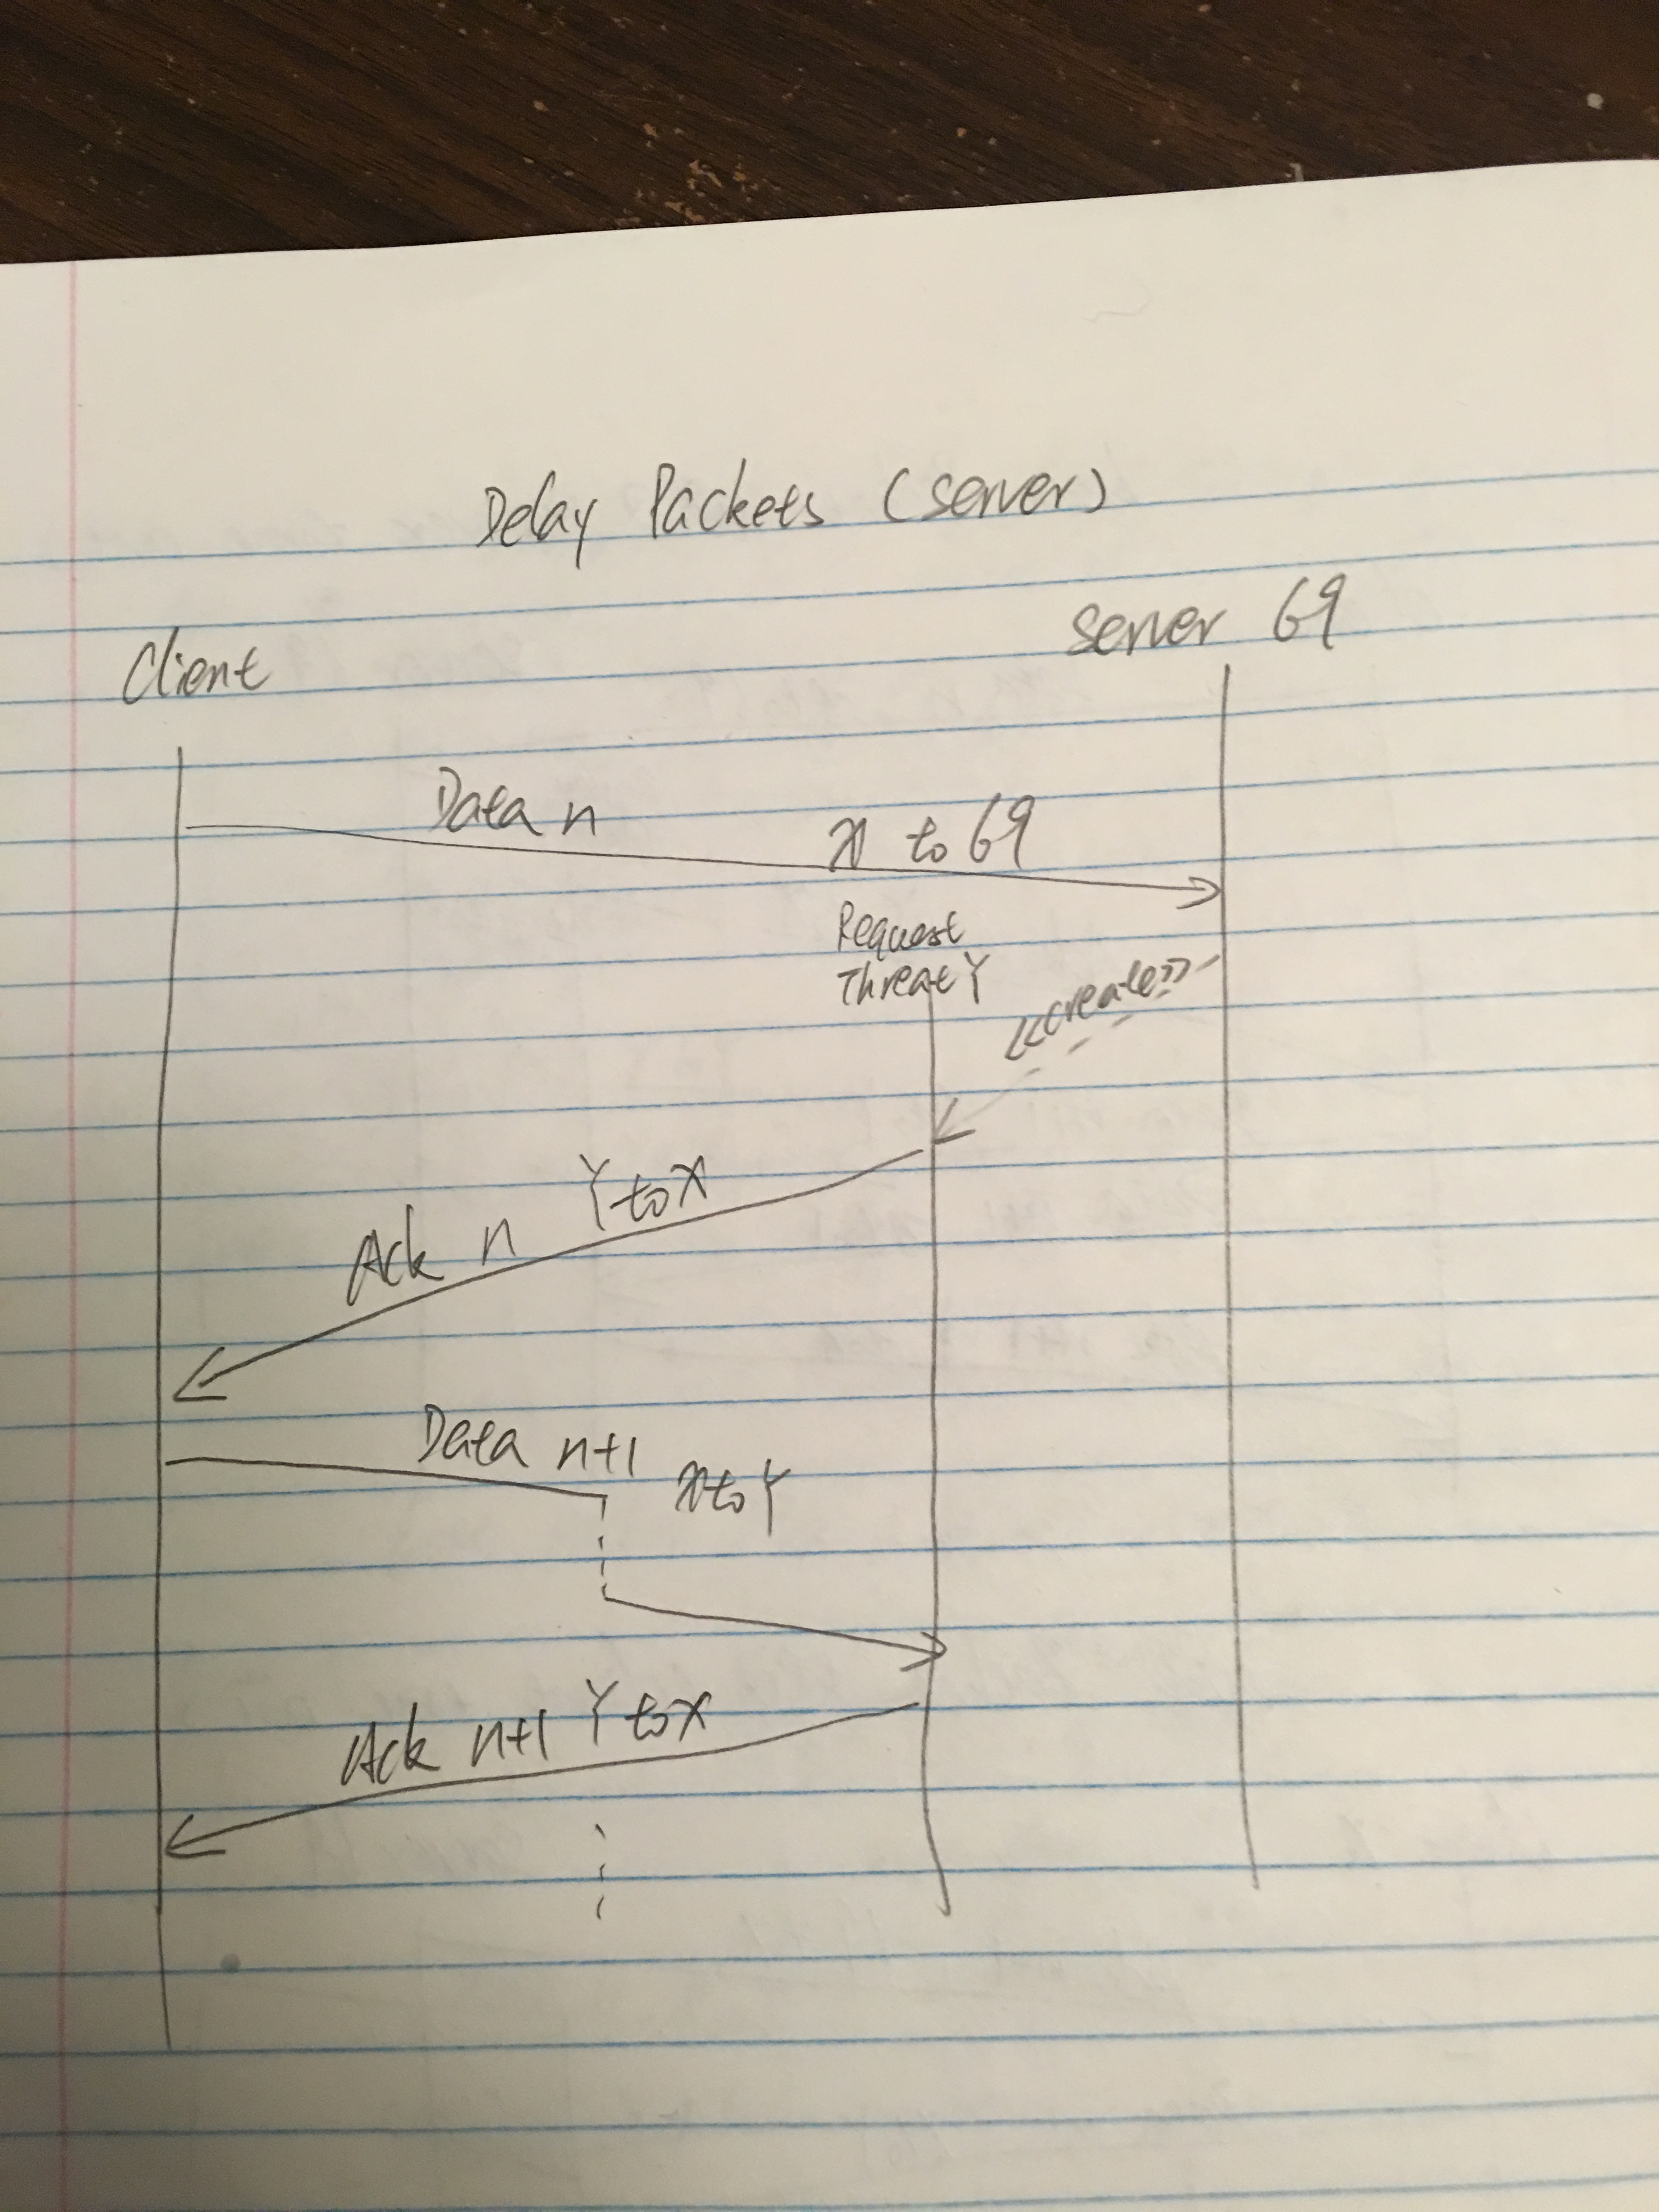 Delay Packets (server)
Client
server 69
Data n
x to 69
Request
Threat Y
<<create>>
Ack n Y to X
Data n+1
x to Y
Ack n+1 Y to X